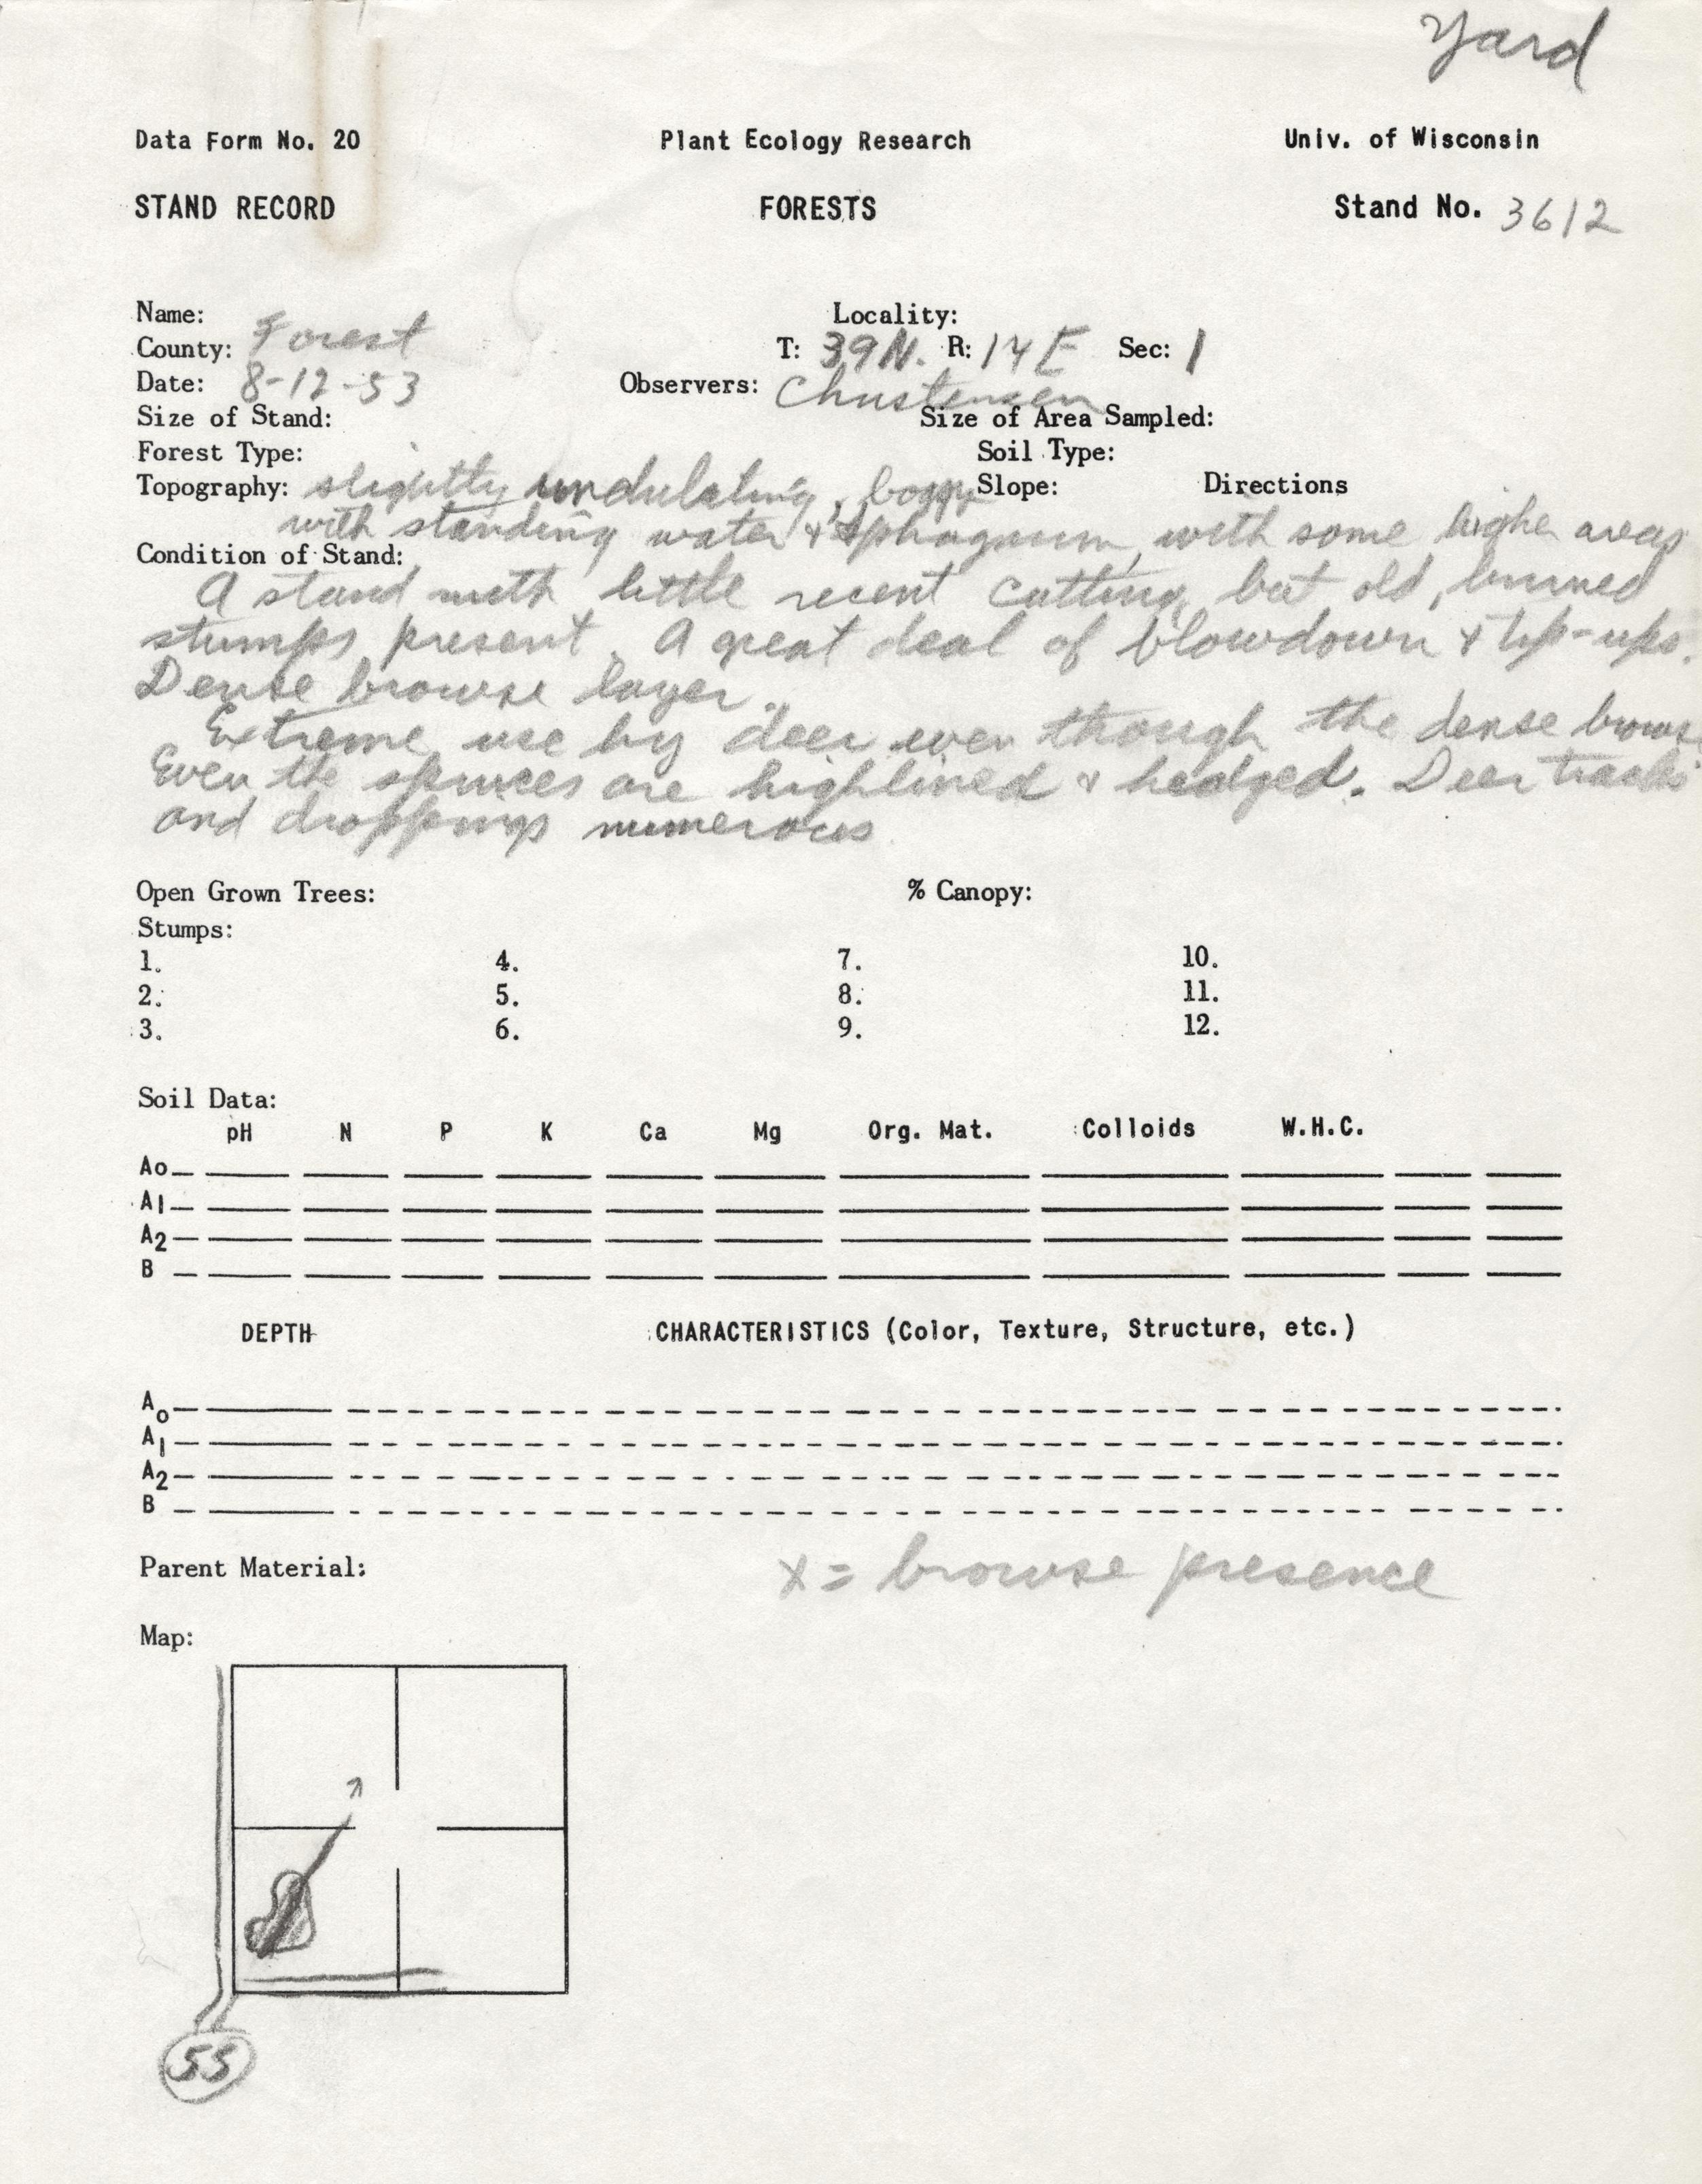 Yard
Data Form No. 20 Plant Ecology Research Univ. of Wisconsin
STAND RECORD FORESTS Stand No. 3612
Name: Locality:
County: Forest T: 39N. R: 14E Sec: 1
Date: 8-12-53 Observers: Christensen
Size of Stand: Size of Area Sampled:
Forest Type: Soil Type:
Topography: slightly undulating, boggy Slope: Directions
with standing water & Sphagnum, with some higher areas
Condition of Stand:
A stand with little recent cutting, but old, burned
stumps present. A great deal of blowdown & tip-ups.
Dense browse layer.
Extreme use by deer even though the dense browse
Even the spruces are highlined & hedged. Deer tracks
and droppings numerous
Open Grown Trees: % Canopy:
Stumps:
1. 4. 7. 10.
2. 5. 8. 11.
3. 6. 9. 12.
Soil Data:
pH N P K Ca Mg Org. Mat. Colloids W.H.C.
Ao
A1
A2
B
DEPTH CHARACTERISTICS (Color, Texture, Structure, etc.)
Ao
A1
A2
B
Parent Material: x = browse presence
Map:
55